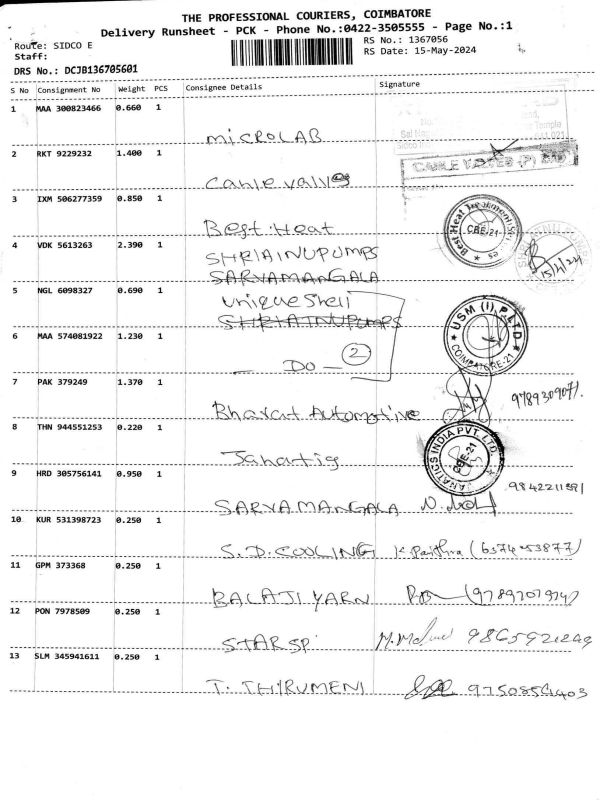 THE PROFESSIONAL COURIERS, COIMBATORE
Delivery Runsheet - PCK - Phone No.:0422-3505555 - Page No.:1
Route: SIDCO E
RS No.: 1367056
Staff:
RS Date: 15-May-2024
DRS No.: DCJB136705601
S No Consignment No Weight PCS Consignee Details Signature
1 MAA 300823466 0.660 1
MICROLAB
2 RKT 9229232 1.400 1
CANLE VALVES (P) LTD
Canle valves
3 IXM 506277359 0.850 1
Best Heat Treatment
CBE-21
Best Heat
4 VDK 5613263 2.390 1
SHRIAINUPUMPS
SARVAMANGALA
5 NGL 6098327 0.690 1
unique Shell
SHRIAINUPUMPS
USM (I) P LTD
COIMBATORE-21
6 MAA 574081922 1.230 1
- DO - 2
7 PAK 379249 1.370 1
Bharat Automotive
8 THN 944551253 0.220 1
JANATICS INDIA PVT. LTD.
CBE-21
Janatig
9 HRD 305756141 0.950 1
SARVAMANGALA
10 KUR 531398723 0.250 1
S.D. COOLING
11 GPM 373368 0.250 1
BALAJI YARN
12 PON 7978509 0.250 1
STAR SP
13 SLM 345941611 0.250 1
T. THIRUMENI